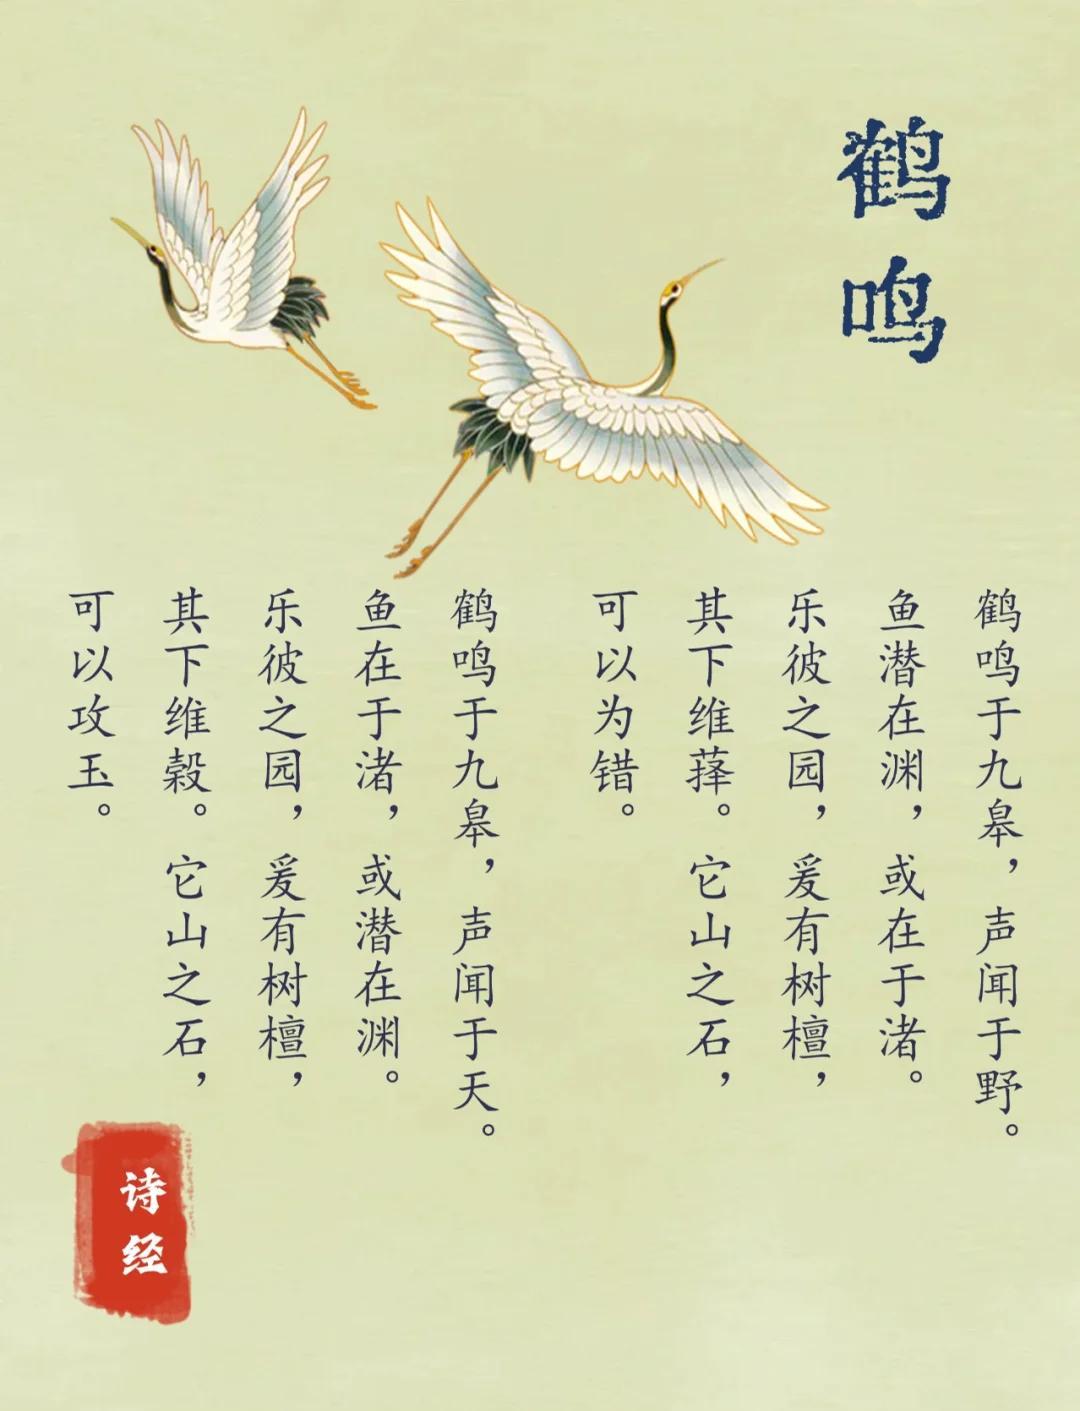 鹤鸣
鹤鸣于九皋，声闻于野。
鱼潜在渊，或在于渚。
乐彼之园，爰有树檀，
其下维萚。它山之石，
可以为错。
鹤鸣于九皋，声闻于天。
鱼在于渚，或潜在渊。
乐彼之园，爰有树檀，
其下维榖。它山之石，
可以攻玉。
诗经